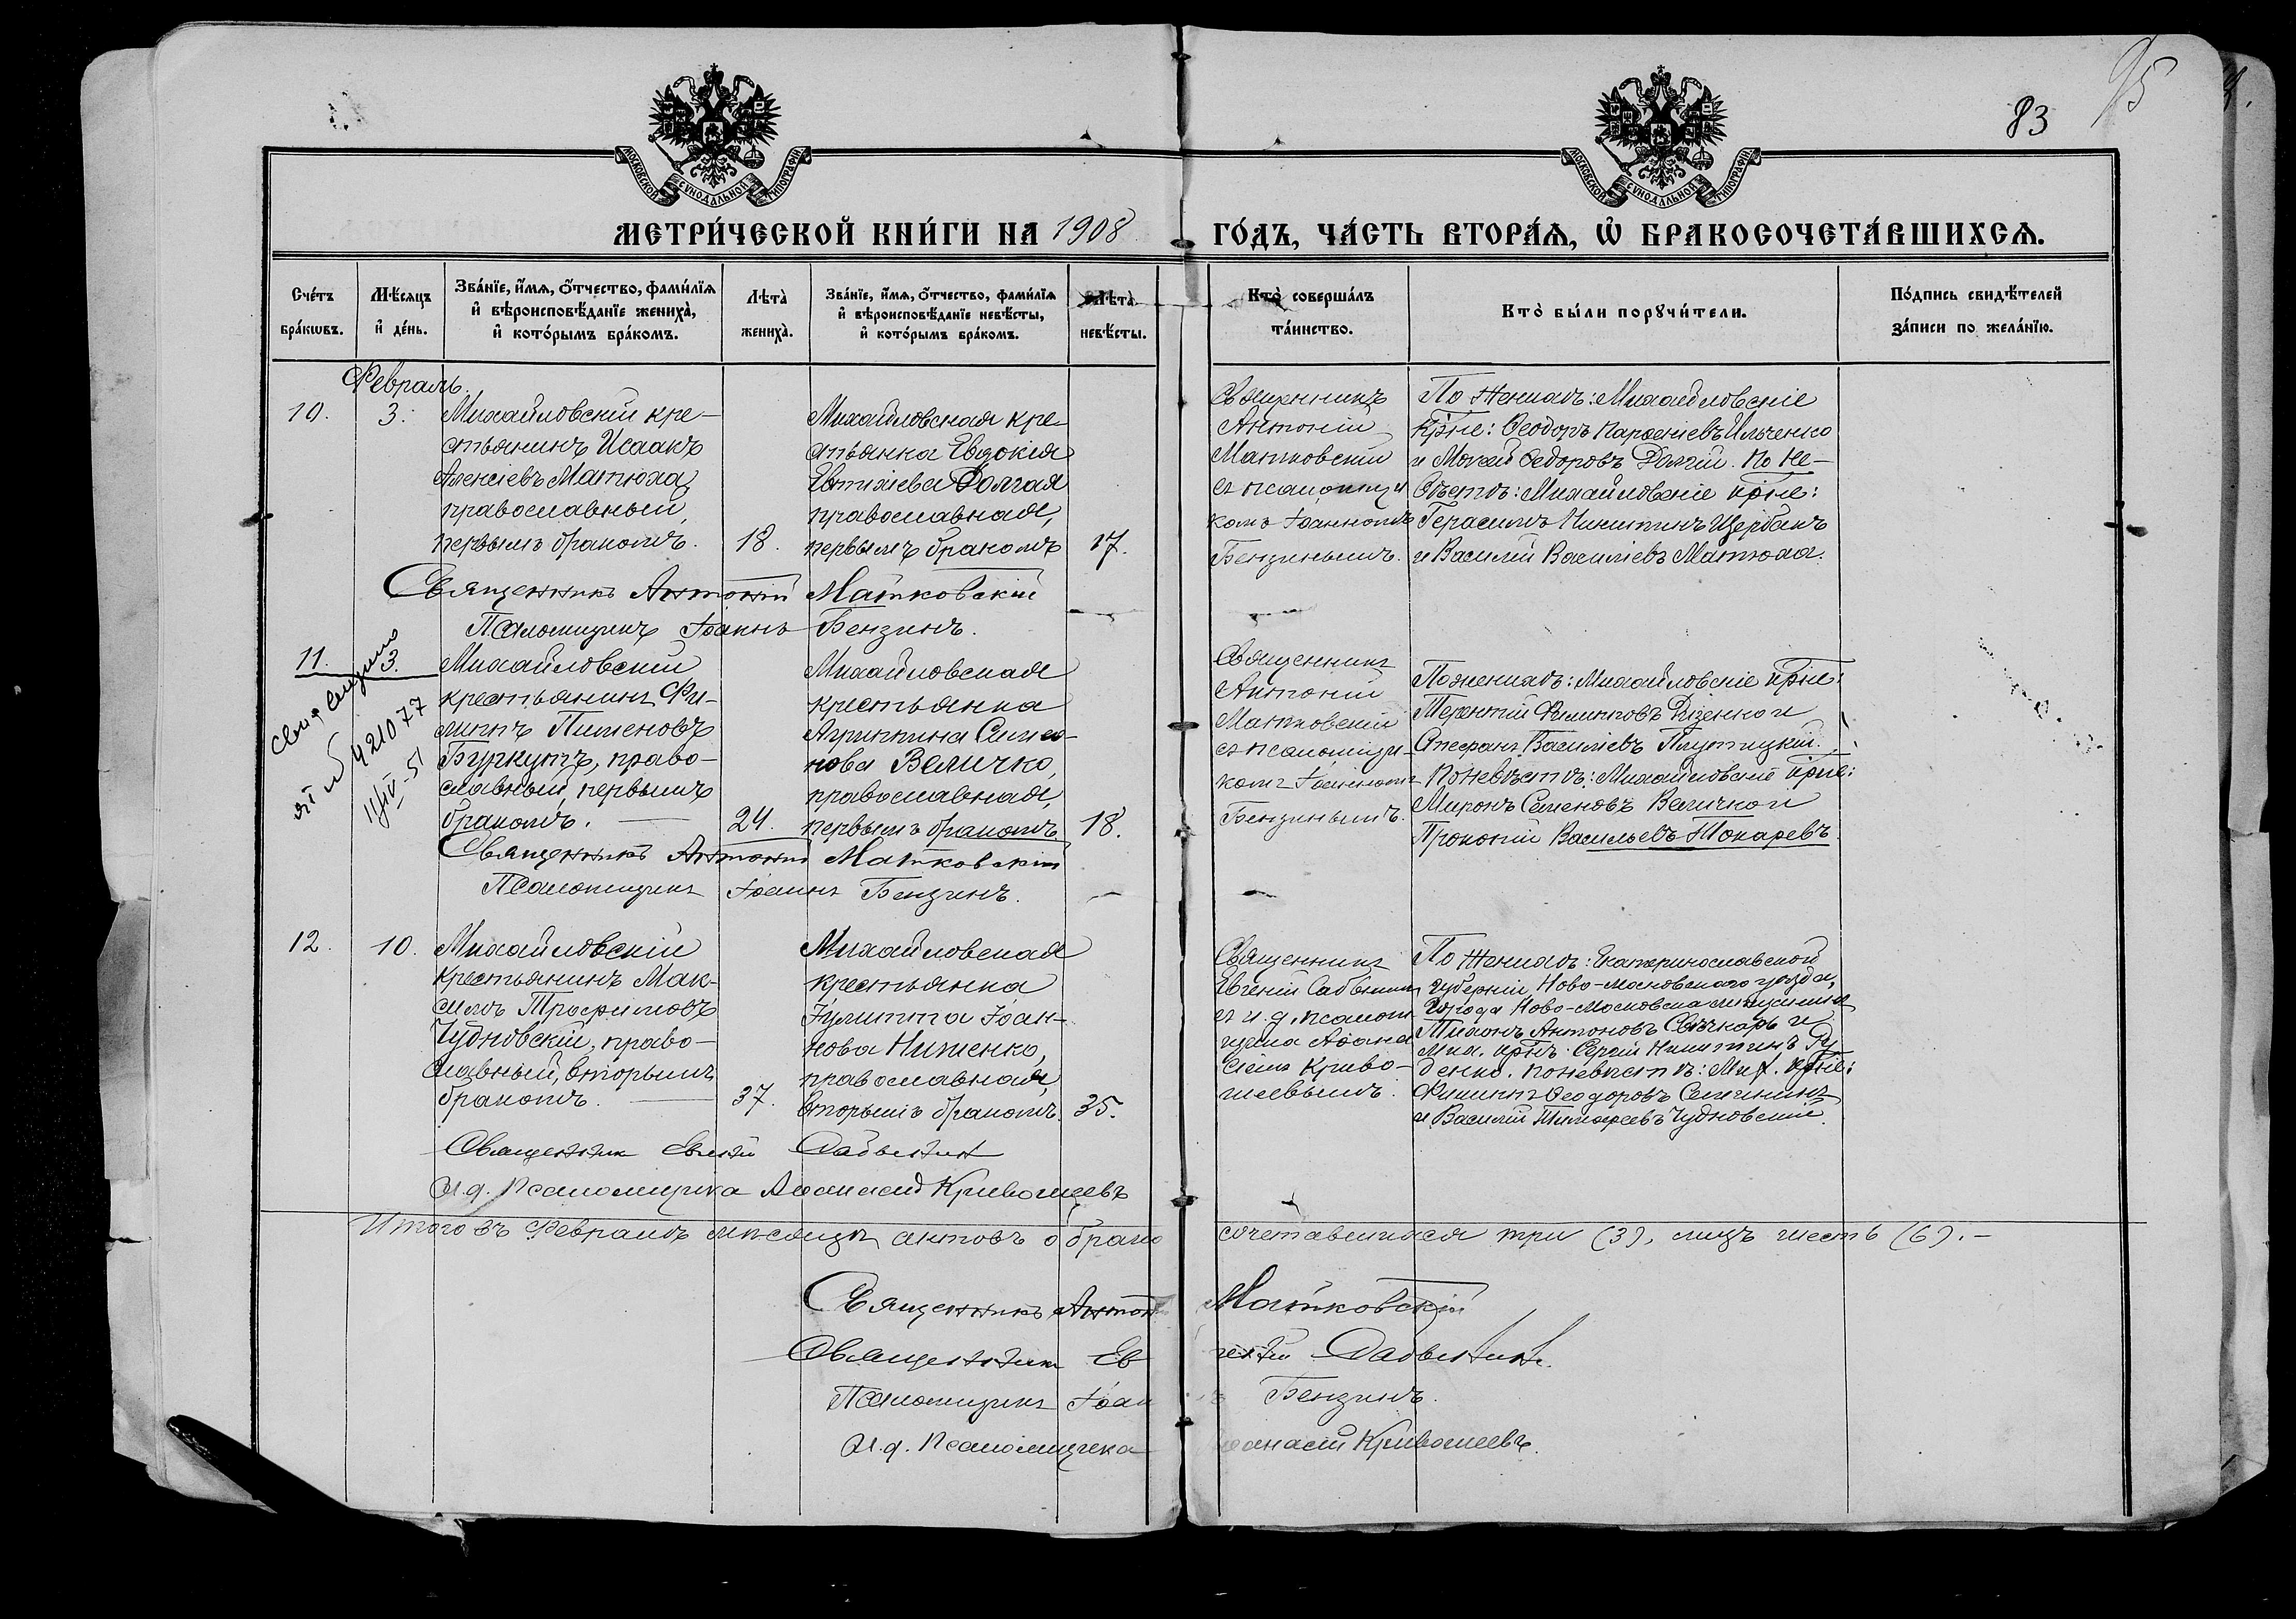 95
83
МОСКОВСКОЙ СѴНОДАЛЬНОЙ ТИПОГРАФІИ
МОСКОВСКОЙ СѴНОДАЛЬНОЙ ТИПОГРАФІИ
МЕТРИ́ЧЕСКОЙ КНИ́ГИ НА 1908 ГО́ДЪ, ЧА́СТЬ ВТОРА́Ѧ, Ѡ҆ БРАКОСОЧЕТА́ВШИХСѦ.
Сче́тъ
бра́кѡвъ.
Мѣ́сѧцъ
и҆ де́нь.
Зва́нїе, и҆́мѧ, ѻ҆́тчество, фами́лїѧ
и҆ вѣроисповѣ́данїе жениха̀,
и҆ кото́рымъ бра́комъ.
Лѣ́та
жениха̀.
Зва́нїе, и҆́мѧ, ѻ҆́тчество, фами́лїѧ
и҆ вѣроисповѣ́данїе невѣ́сты,
и҆ кото́рымъ бра́комъ.
Лѣ́та
невѣ́сты.
Кто̀ соверша́лъ
та́инство.
Кто̀ бы́ли порꙋчи́тели.
По́дпись свидѣ́телей
за́писи по жела́нїю.
Февраль.
10.
3.
Михайловскій кре-
стьянинъ Исаакъ
Алексіевъ Матюха
православный,
первымъ бракомъ.
18.
Михайловская кре-
стьянка Евдокія
Евтихіева Долгая
православная,
первымъ бракомъ
17.
Священникъ
Антоній
Матковскій
съ псаломщи
комъ Іоанномъ
Бензинымъ.
По женихѣ: Михайловскіе
кр̃не: Ѳеодоръ Парѳеніевъ Ильченко
и Мокей Ѳедоровъ Долгій. По не-
вѣстѣ: Михайловскіе кр̃не:
Герасимъ Никитинъ Щербакъ
и Василій Василіевъ Матюха.
Священникъ Антоній Матковскій
Псаломщикъ Іоаннъ Бензинъ.
11.
3.
421077
11/IV-51
Михайловскій
крестьянинъ Фи-
липпъ Пименовъ
Буркутъ, право-
славный, первымъ
бракомъ.
24.
Михайловская
крестьянка
Агриппина Симео-
нова Величко,
православная,
первымъ бракомъ
18.
Священникъ
Антоній
Матковскій
съ псаломщи-
комъ Іоанномъ
Бензинымъ.
По женихѣ: Михайловскіе кр̃не:
Терентій Филипповъ и
Стефанъ Василіевъ
По невѣстѣ: Михайловскіе кр̃не:
Миронъ Семеновъ Величко и
Прокопій Васильевъ Токаревъ.
Священникъ Антоній Матковскій
Псаломщикъ Іоаннъ Бензинъ.
12.
10.
Михайловскій
крестьянинъ Мак-
симъ Трофимовъ
Чудновскій, право-
славный, вторымъ
бракомъ.
37.
Михайловская
крестьянка
Іулитта Іоан-
нова Ниженко,
православная,
вторымъ бракомъ.
35.
Священникъ
Евгеній Савынинъ
съ и. д. псалом
щика Аѳана
сіемъ Криво-
шеевымъ.
По женихѣ: Екатеринославской
губерніи Ново-Московскаго уѣзда,
города Ново-Московска мѣщанинъ
Тихонъ Антоновъ Свѣчкарь и
Мих. кр̃нъ Сергій Никитинъ Ру
денко. По невѣстѣ: Мих. кр̃не:
Филиппъ Ѳеодоровъ
и Василій Тимофеевъ Чудновскій.
Священник Евгеній Савынин
И. д. Псаломщика Аѳанасій Кривошеевъ
Итого въ Февралѣ мѣсяцѣ актовъ о брако сочетавшихся три (3), лицъ шесть (6).–
Священникъ Антон Матковскій
Священник Ев геній Савынин.
Псаломщикъ Іоан Бензинъ.
И. д. Псаломщика анасій Кривошеевъ.